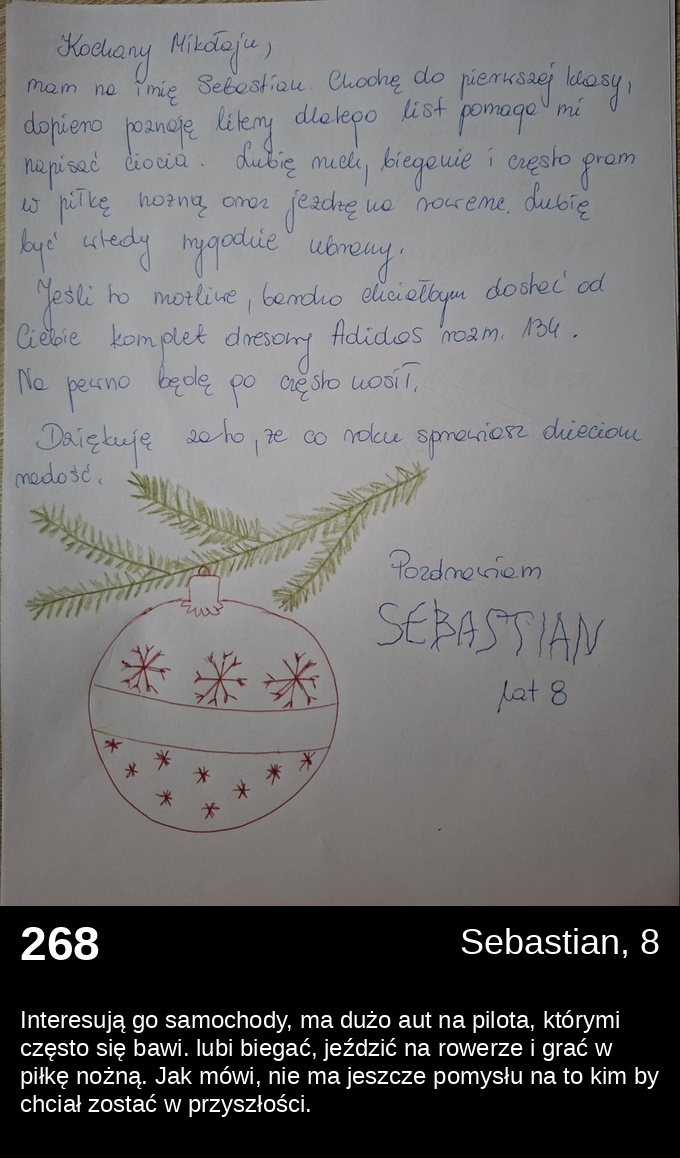 Kochany Mikołaju,
mam na imię Sebastian. Chodzę do pierwszej klasy,
dopiero poznaję litery dlatego list pomaga mi
napisać ciocia. Lubię ruch, bieganie i często gram
w piłkę nożną oraz jeżdżę na rowerze. Lubię
być wtedy wygodnie ubrany.
Jeśli to możliwe, bardzo chciałbym dostać od
Ciebie komplet dresowy Adidas rozm. 134.
Na pewno będę go często nosił.
Dziękuję za to, że co roku sprawiasz dzieciom
radość.
Pozdrawiam
SEBASTIAN
lat 8
268
Sebastian, 8
Interesują go samochody, ma dużo aut na pilota, którymi
często się bawi. lubi biegać, jeździć na rowerze i grać w
piłkę nożną. Jak mówi, nie ma jeszcze pomysłu na to kim by
chciał zostać w przyszłości.